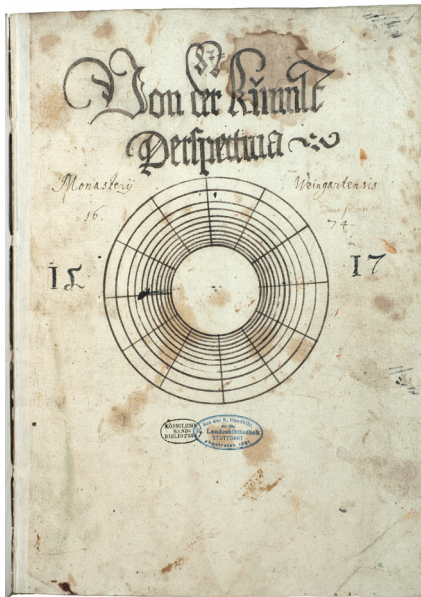 Von der Kunnst
Perspectiua
Monasterij Weingartensis
16. 74.
15 17
KÖNIGLICHE
HAND-
BIBLIOTHEK
Aus der K. Handbibl.
Landesbibliothek
STUTTGART